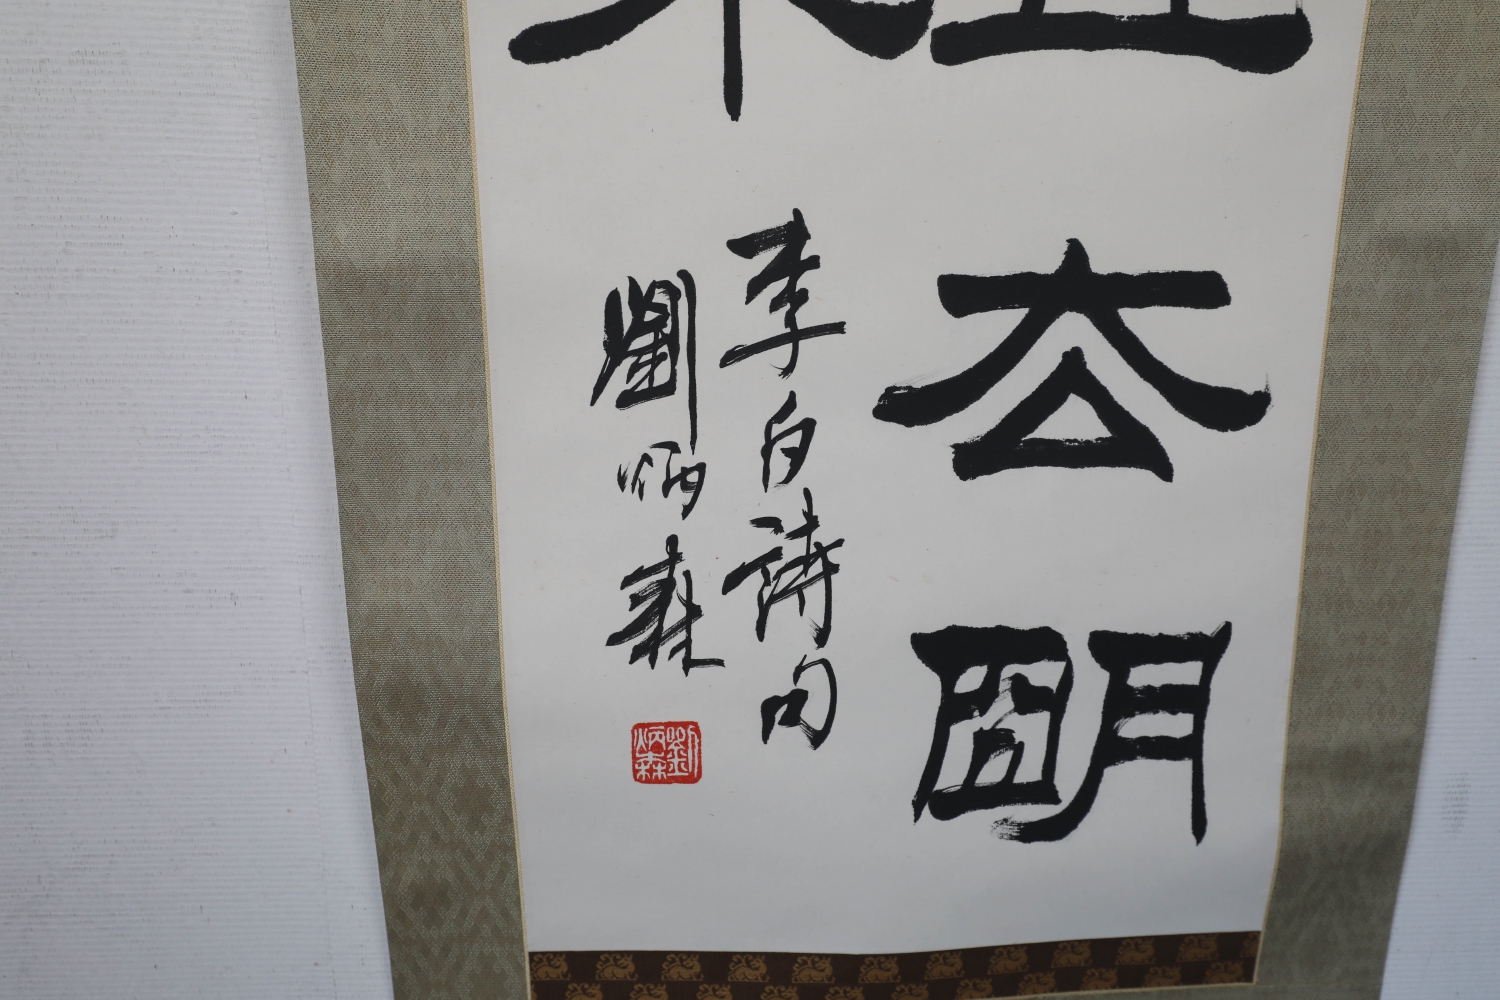 去朙
李白詩句
劉炳森
劉炳森